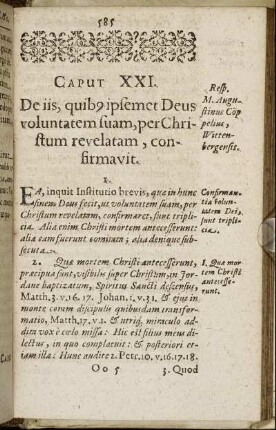 585
CAPUT XXI.
De iis, quibꝰ ipsemet Deus
voluntatem suam, per Chri-
stum revelatam, con-
firmavit.
Resp.
M. Augu-
stinus Cop
pelius,
Witten-
bergensis.
1.
EA, inquit Institutio brevis, quæ in hunc
finem Deus fecit, ut voluntatem suam, per
Christum revelatam, confirmaret, sunt tripli-
cia. Alia enim Christi mortem antecesserunt:
alia eam fuerunt comitata; alia denique sub-
secuta.
Confirman-
tia volun-
tatem Dei,
sunt tripli-
cia.
2. Quæ mortem Christi antecesserunt,
præcipua sunt, visibilis super Christum, in Jor-
dane baptizatum, Spiritus Sancti descensus,
Matth. 3. v. 16. 17. Johan. 1. v. 31, & ejus in
monte coram discipulis quibusdam transfor-
matio, Matth. 17. v. 1. & utriq; miraculo ad-
dita vox è cœlo missa: Hic est filius meus di-
lectus, in quo complacuit: & posteriori et-
iam illa: Hunc audite 2. Petr. 10. v. 16. 17. 18.
1. Quæ mor-
tem Christi
antecesse-
runt.
Oo 5
3. Quod